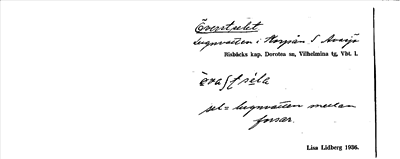 Överselet
lugnvatten i Korpån S Avasjö
Risbäcks kap. Dorotea sn, Vilhelmina tg, Vbt. l.
sel = lugnvatten mellan
forsar.
Lisa Lidberg 1936.